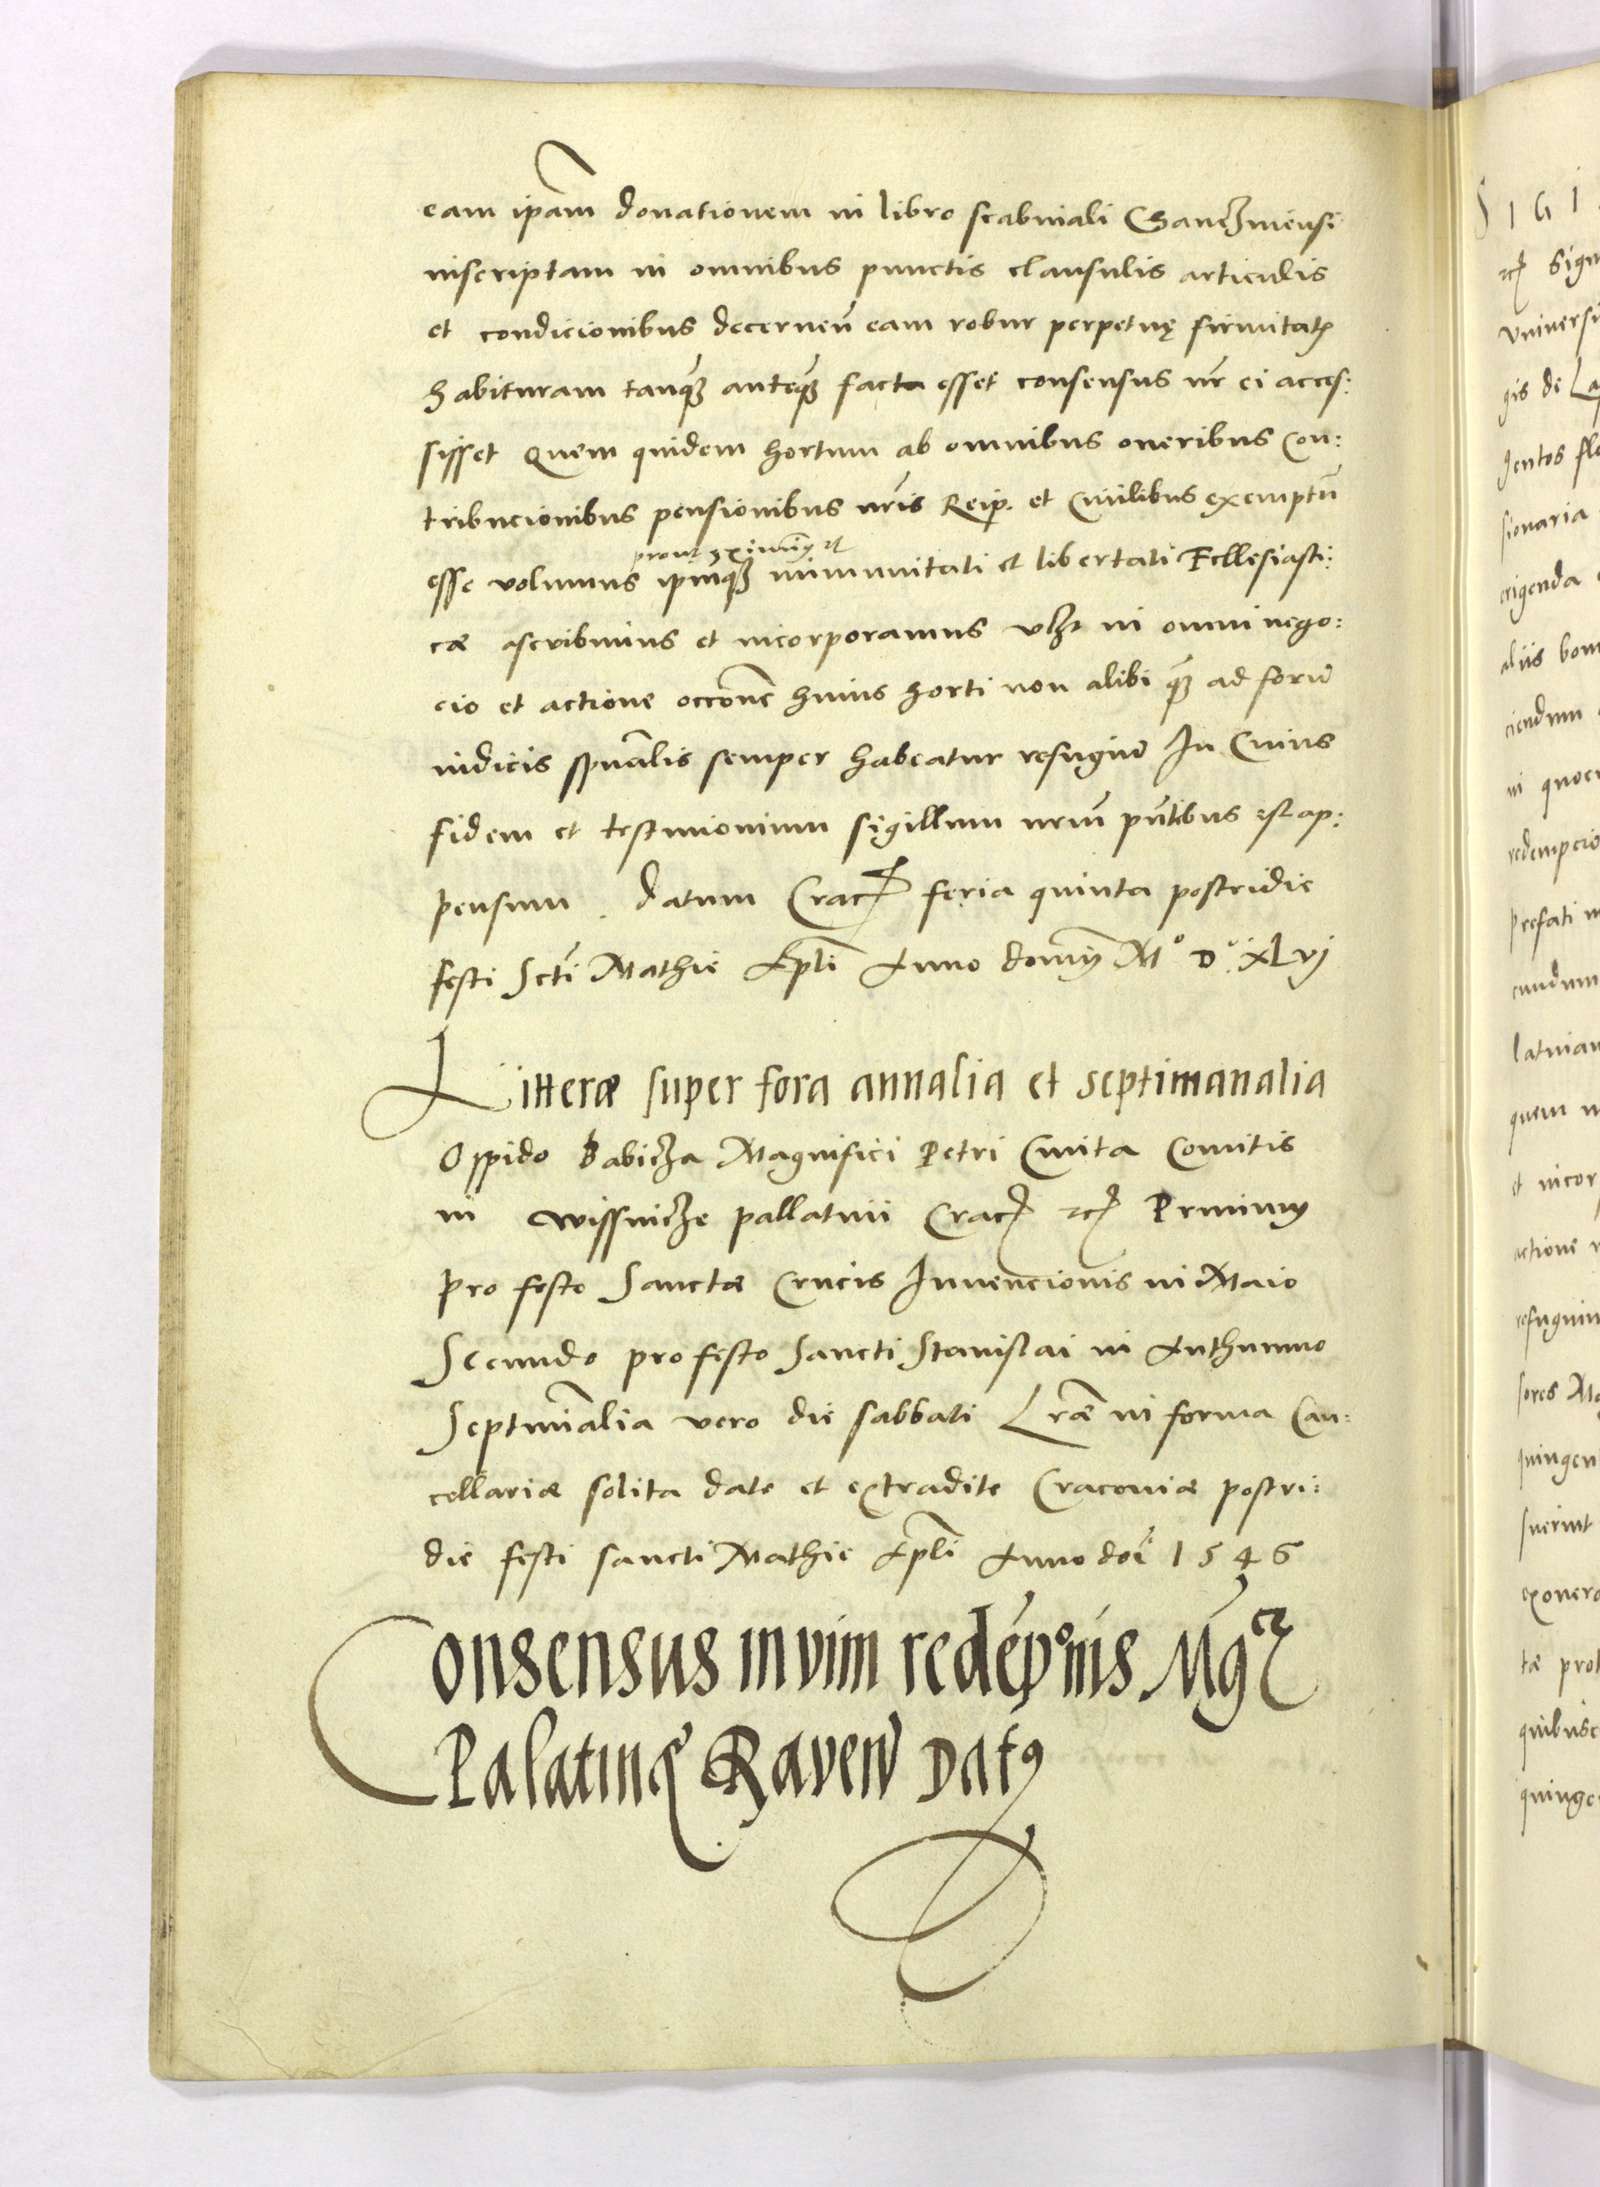 eam ipam donationem in libro scabinali Sanczniensi
inscriptam in omnibus punctis clausulis articulis
et condicionibus decernen eam robur perpetuę firmitat
habituram tanq anteq facta esset consensus nr ei acces:
sisset Quem quidem hortum ab omnibus oneribus Con:
tribucionibus pensionibus nris Reip. et Ciuilibus exemptu
prout eximimus et
esse volumus ipmq immunitati et libertati Ecllesiasti:
cæ asscribimus et incorporamus vtq in omni nego:
cio et actione occone huius horti non alibi q ad foru
iudicis spualis semper habeatur refugiu In Cuius
fidem et testimonium sigillum nrum pntibus est ap:
pensum. datum Crac feria quinta postridie
festi Scti Mathie Apli Anno domi M° D° XLvj
Litteræ super fora annalia et septimanalia
Oppido Babicza Magnifici Petri Cmita Comitis
in Wissnicze pallatini Crac etc Primum
pro festo Sanctæ Crucis Inuencionis in Maio
Secundo pro festo Sancti Stanislai in Authumno
Septimalia vero die sabbati Lræ in forma Can:
cellariæ solita date et extradite Cracouiæ postri:
die festi sancti Mathie Apli Anno doi 1546
Consensus in vim redepois Mgco
Palatino Raven Datus
SIGI
etc Sigi
vniuersi
gis de La
gentos flo
sionaria
erigenda
aliis bon
ciendum
in quocu
redempcio
prefati
cundum
latinam
quem
et incor
actione
refugium
sores Ma
quingen
fuerint
exonera
tæ pro
quibusc
quinge